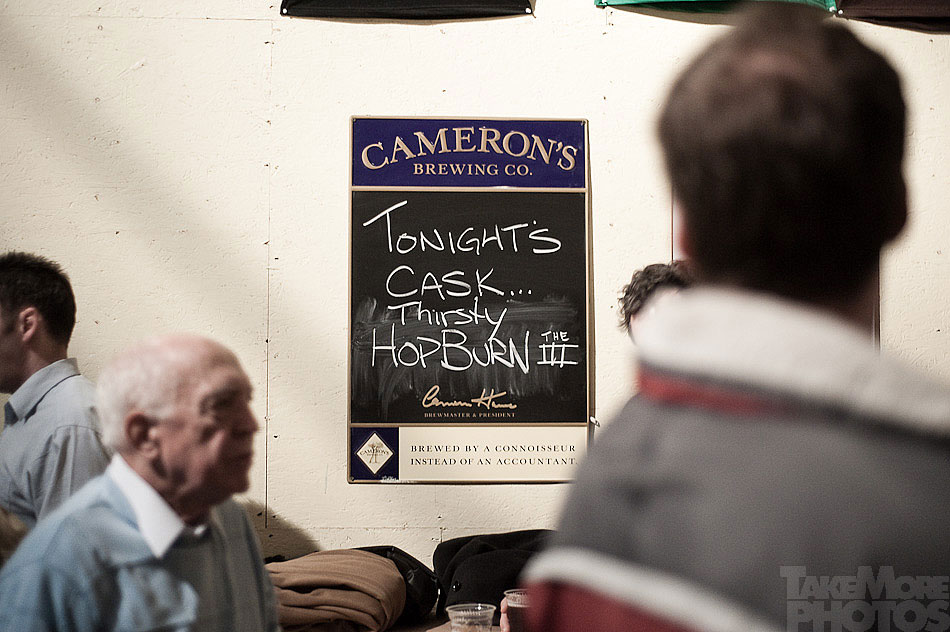 CAMERON'S
BREWING CO.
TONIGHT'S
CASK...
Thirsty
HOPBURN THE III
BREWMASTER & PRESIDENT
CAMERON'S
BREWED BY A CONNOISSEUR
INSTEAD OF AN ACCOUNTANT.
TAKEMORE
PHOTOS